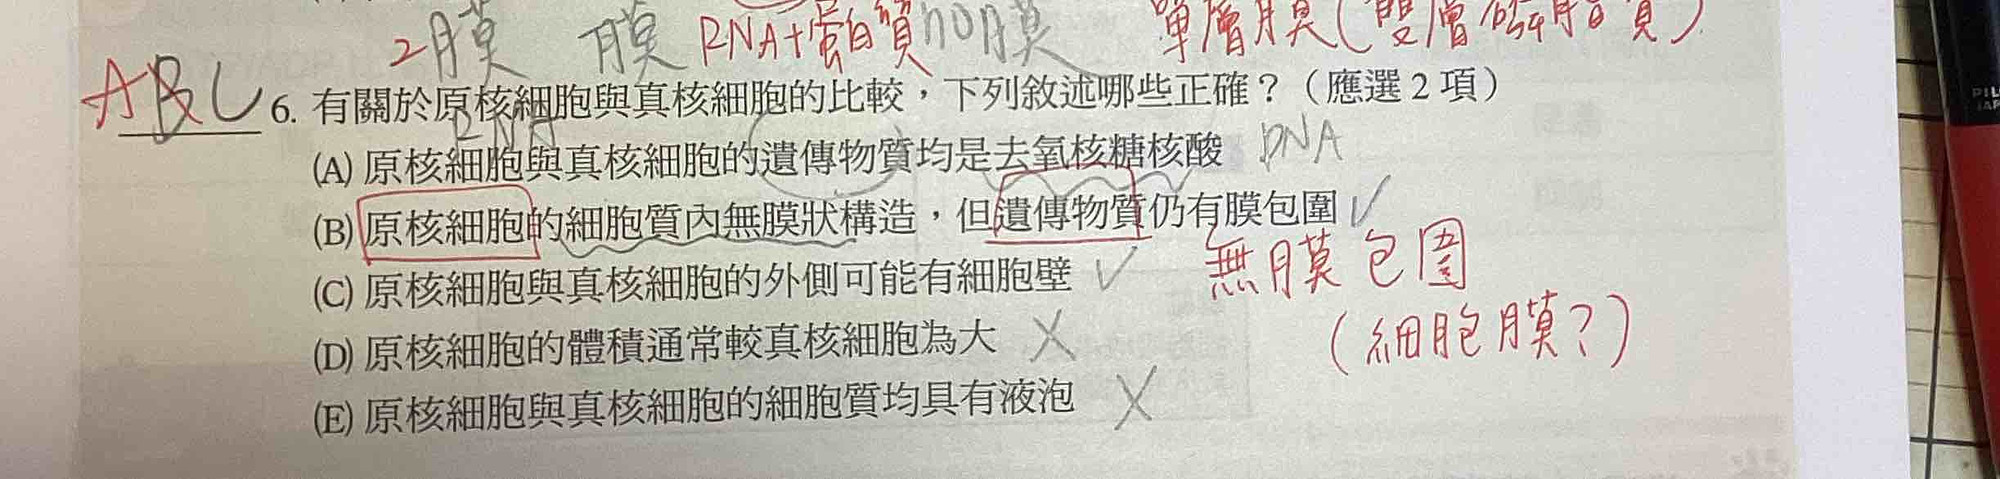 2膜 膜 RNA+蛋白質 no膜 單層膜(雙層磷脂質)
ABC 6. 有關於原核細胞與真核細胞的比較，下列敘述哪些正確？（應選2項）
RNA
(A) 原核細胞與真核細胞的遺傳物質均是去氧核糖核酸 DNA
(B) 原核細胞的細胞質內無膜狀構造，但遺傳物質仍有膜包圍 ✓
無膜包圍
(C) 原核細胞與真核細胞的外側可能有細胞壁 ✓
(細胞膜?)
(D) 原核細胞的體積通常較真核細胞為大 X
(E) 原核細胞與真核細胞的細胞質均具有液泡 X
PIL
JAP